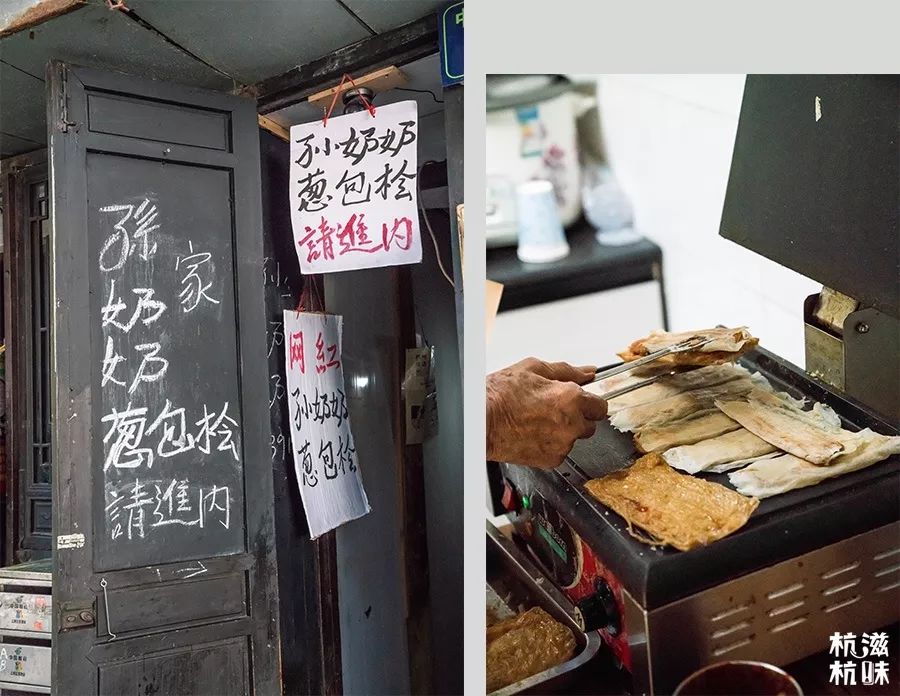 孫
奶
奶
家
葱包桧
請進内
孙奶奶
葱包桧
請進内
网紅
孙奶奶
葱包桧
杭滋
杭味